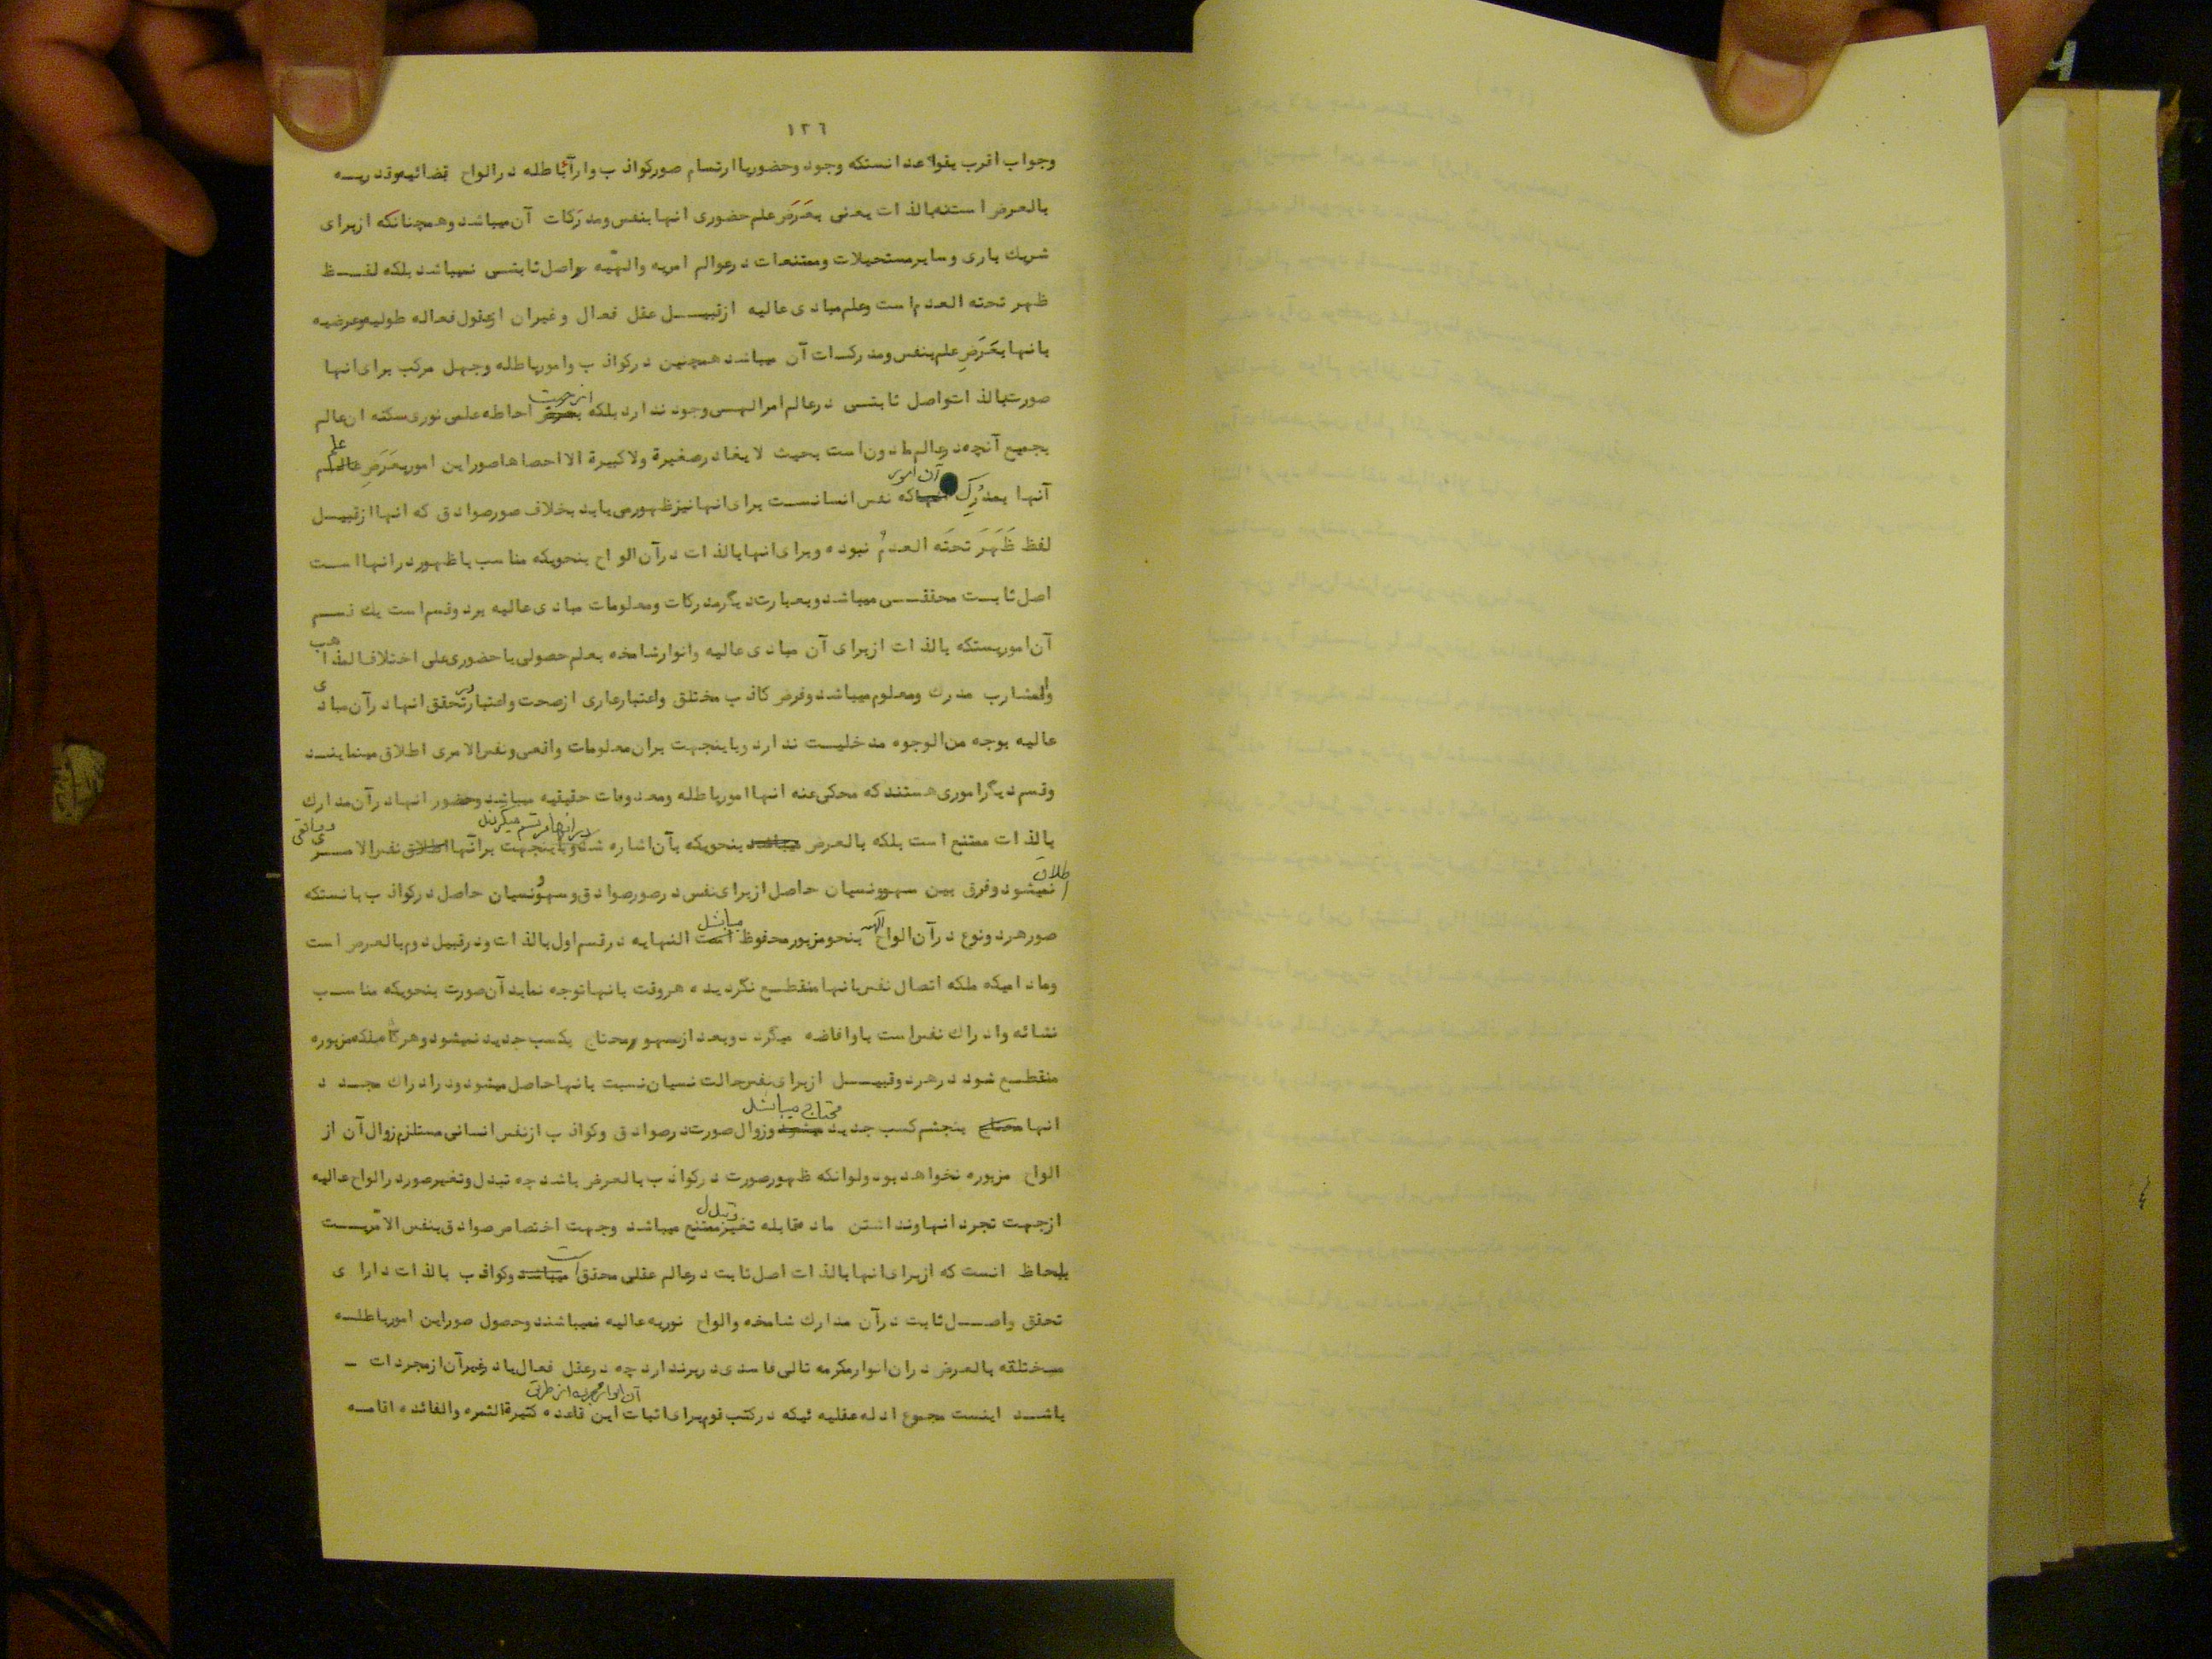 ١٢٦
وجواب اقرب بقواعد انستکه وجود وحضور یا ارتسام صور کواذب وارآء باطله در الواح قضائیه وقدریه
بالعرض است نه بالذات یعنی بعَرَضِ علم حضوری انها بنفس ومدرَکات آن میباشد وهمچنانکه از برای
شریك باری وسایر مستحیلات وممتنعات در عوالم امریه والهیّه واصل ثابتی نمیباشد بلکه لفظ
ظهر تحته العدم است وعلم مبادی عالیه از قبیل عقل فعال وغیر ان از عقول فعاله طولیه وعرضیه
بانها بعَرَضِ علم بنفس ومدرکات آن میباشد همچنین در کواذب وامور باطله وجهل مرکب برای انها
صورت بالذات واصل ثابتی در عالم امر الهی وجود ندارد بلکه از جهت احاطه علمی نوری سکنه ان عالم
بجمیع آنچه در عالم مادون است بحیث لا یغادر صغیرة ولا کبیرة الا احصاها صور این امور بعَرَضِ علم
آنها بمدرِك آن امور که نفس انسانست برای انها نیز ظهور می یابد بخلاف صور صوادق که انها از قبیل
لفظ ظَهَرَ تحتَه العدمُ نبوده وبرای انها بالذات در آن الواح بنحویکه مناسب با ظهور در انها است
اصل ثابت محققی میباشد وبعبارت دیگر مدرکات ومعلومات مبادی عالیه بر دو قسم است یك قسم
آن اموریستکه بالذات از برای آن مبادی عالیه وانوار شامخه بعلم حصولی یا حضوری علی اختلاف المذاهب
والمشارب مدرك ومعلوم میباشد وفرض کاذب مختلق واعتبار عاری از صحت واعتبار در تحقق انها در آن مبادی
عالیه بوجه من الوجوه مدخلیت ندارد وباینجهت بران معلومات واقعی ونفس الامری اطلاق مینمایند
وقسم دیگر اموری هستند که محکی عنه انها امور باطله ومعدومات حقیقیه میباشد وحضور انها در آن مدارك
بالذات ممتنع است بلکه بالعرض بنحویکه بآن اشاره شد در انها مرتسم میگردند وباینجهت برآنها نفس الامری وواقعی
اطلاق نمیشود وفرق بین سهو ونسیان حاصل از برای نفس در صور صوادق وسهو ونسیان حاصل در کواذب بانستکه
صور هر دو نوع در آن الواح الهیه بنحو مزبور محفوظ میباشد النهایه در قسم اول بالذات ودر قبیل دوم بالعرض است
ومادامیکه ملکه اتصال نفس بانها منقطع نگردیده هر وقت بانها توجه نماید آن صورت بنحویکه مناسب
نشائه وادراك نفس است باو افاضه میگردد وبعد از سهو محتاج بکسب جدید نمیشود وهر گاه ملکه مزبوره
منقطع شود در هر دو قبیل از برای نفس حالت نسیان نسبت بانها حاصل میشود ودر ادراك مجدد
انها بتجشم کسب جدید محتاج میباشد وزوال صورت در صوادق وکواذب از نفس انسانی مستلزم زوال آن از
الواح مزبوره نخواهد بود ولو انکه ظهور صورت در کواذب بالعرض باشد چه تبدل وتغیر صور در الواح عالیه
از جهت تجرد انها ونداشتن ماده قابله تغیر وتبدل ممتنع میباشد وجهت اختصاص صوادق بنفس الامریت
بلحاظ انست که از برای انها بالذات اصل ثابت در عالم عقلی محقق است وکواذب بالذات دارای
تحقق واصل ثابت در آن مدارك شامخه والواح نوریه عالیه نمیباشند وحصول صور این امور باطله
مختلقه بالعرض در ان انوار مکرمه تالی فاسدی در بر ندارد چه در عقل فعال یا در غیر آن از مجردات
باشد اینست مجموع ادله عقلیه ئیکه در کتب قوم برای اثبات این قاعده کثیرة الثمره والفائده اقامه